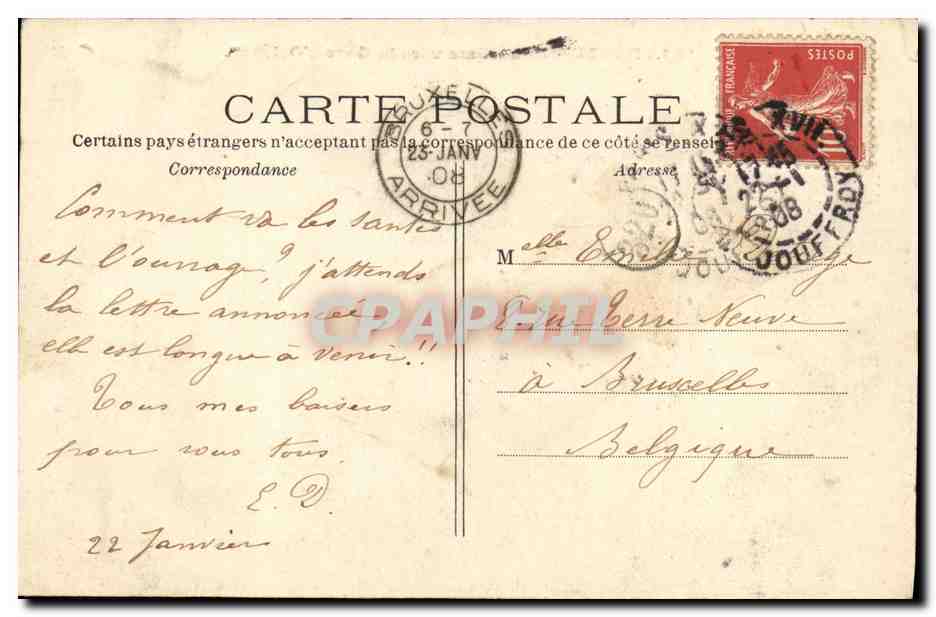 CARTE POSTALE
Certains pays étrangers n'acceptant pas la correspondance de ce côté se renseigner
Correspondance
Adresse
BRUXELLES
6 - 7
23 JANV
08
ARRIVEE
POSTES
FRANÇAISE
JOUFFROY
Comment va les santés
et l'ouvrage? j'attends
la lettre annoncée
elle est longue à venir!!
Tous mes baisers
pour vous tous
E. D.
22 Janvier
Melle
rue Terre Neuve
à Bruxelles
Belgique
CPAPHIL